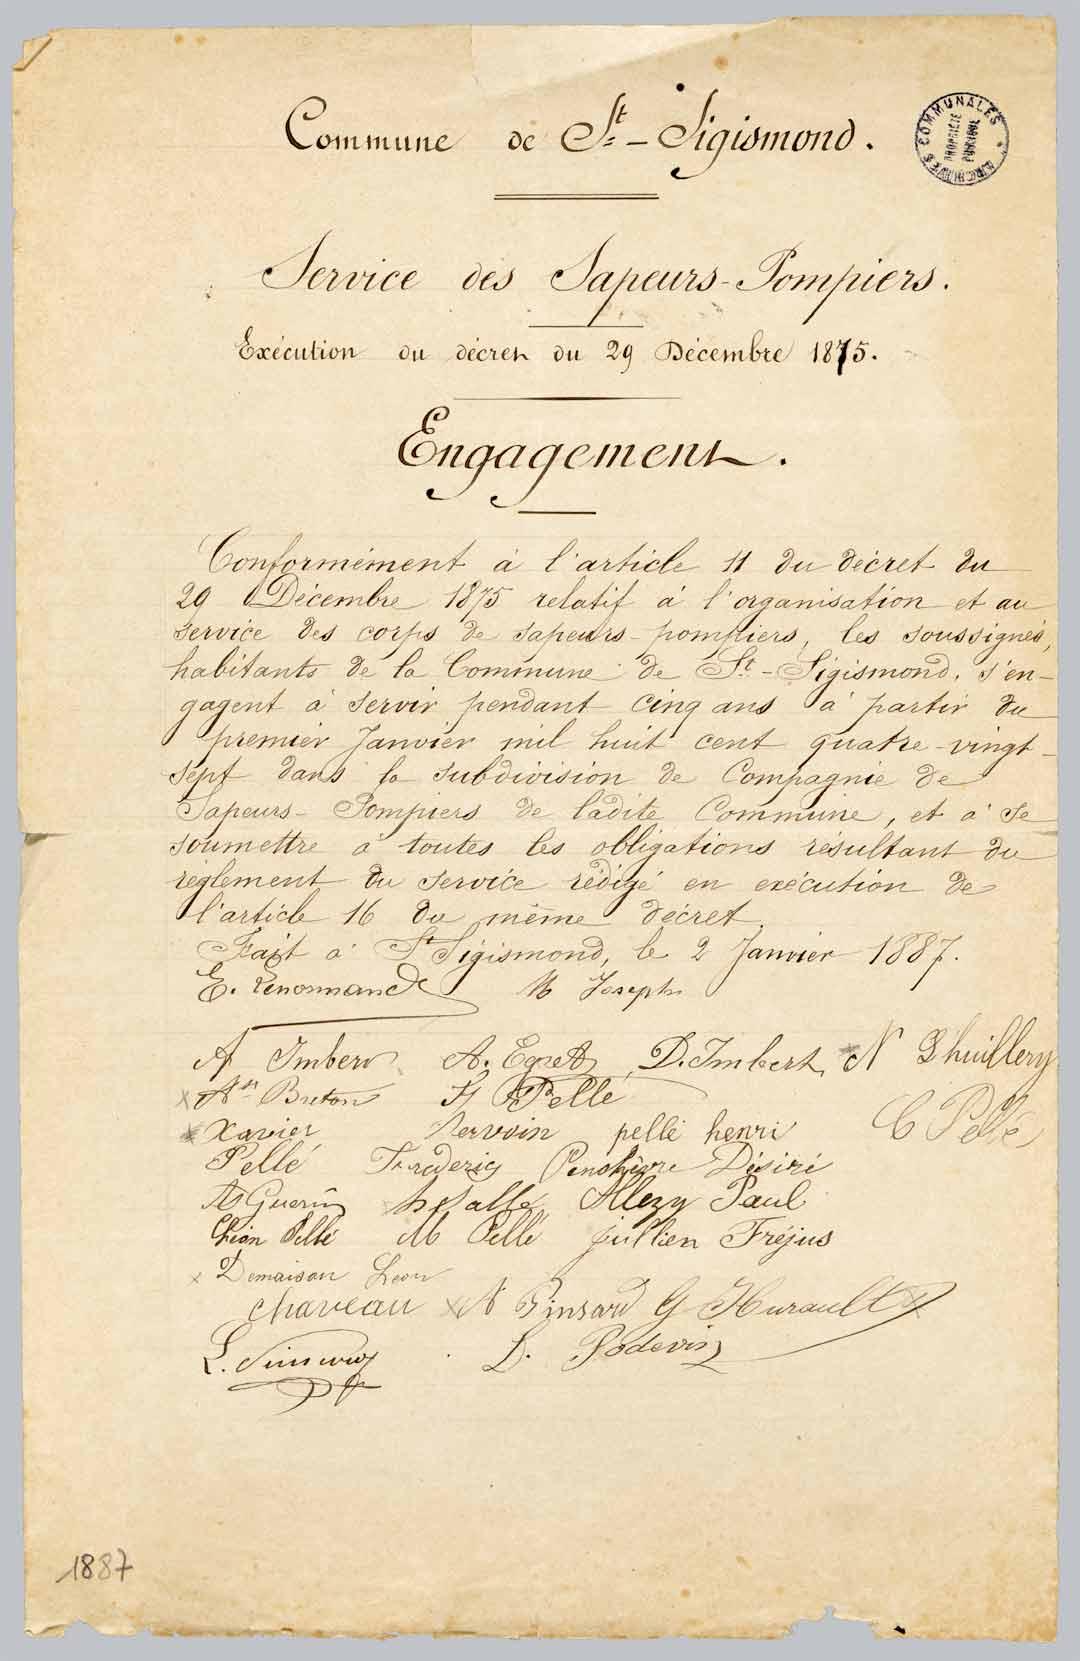 Commune de St - Sigismond.
COMMUNALES
ARCHIVES
PROPRIÉTÉ
PUBLIQUE
Service des Sapeurs-Pompiers.
Exécution du décret du 29 Décembre 1875.
Engagement.
Conformément à l'article 11 du décret du
29 Décembre 1875 relatif à l'organisation et au
service des corps de sapeurs-pompiers, les soussignés,
habitants de la Commune de St-Sigismond, s'en-
gagent à servir pendant cinq ans à partir du
premier Janvier mil huit cent quatre-vingt-
sept dans la subdivision de Compagnie de
Sapeurs-Pompiers de ladite Commune, et à se
soumettre à toutes les obligations résultant du
règlement du service rédigé en exécution de
l'article 16 du même décret.
Fait à St Sigismond, le 2 Janvier 1887.
E. Lenormand M Joseph
A Imbert A. Egret D. Imbert N Lhuillery
Breton H Pellé
C Pellé
Xavier Servoin pellé henri
Pellé Frédéric Désiré
Guérin Paul
Léon Pellé M Pellé jullien Fréjus
Demaison Léon
chaveau N Pinsard G Hurault
L. L. Podevin
1887